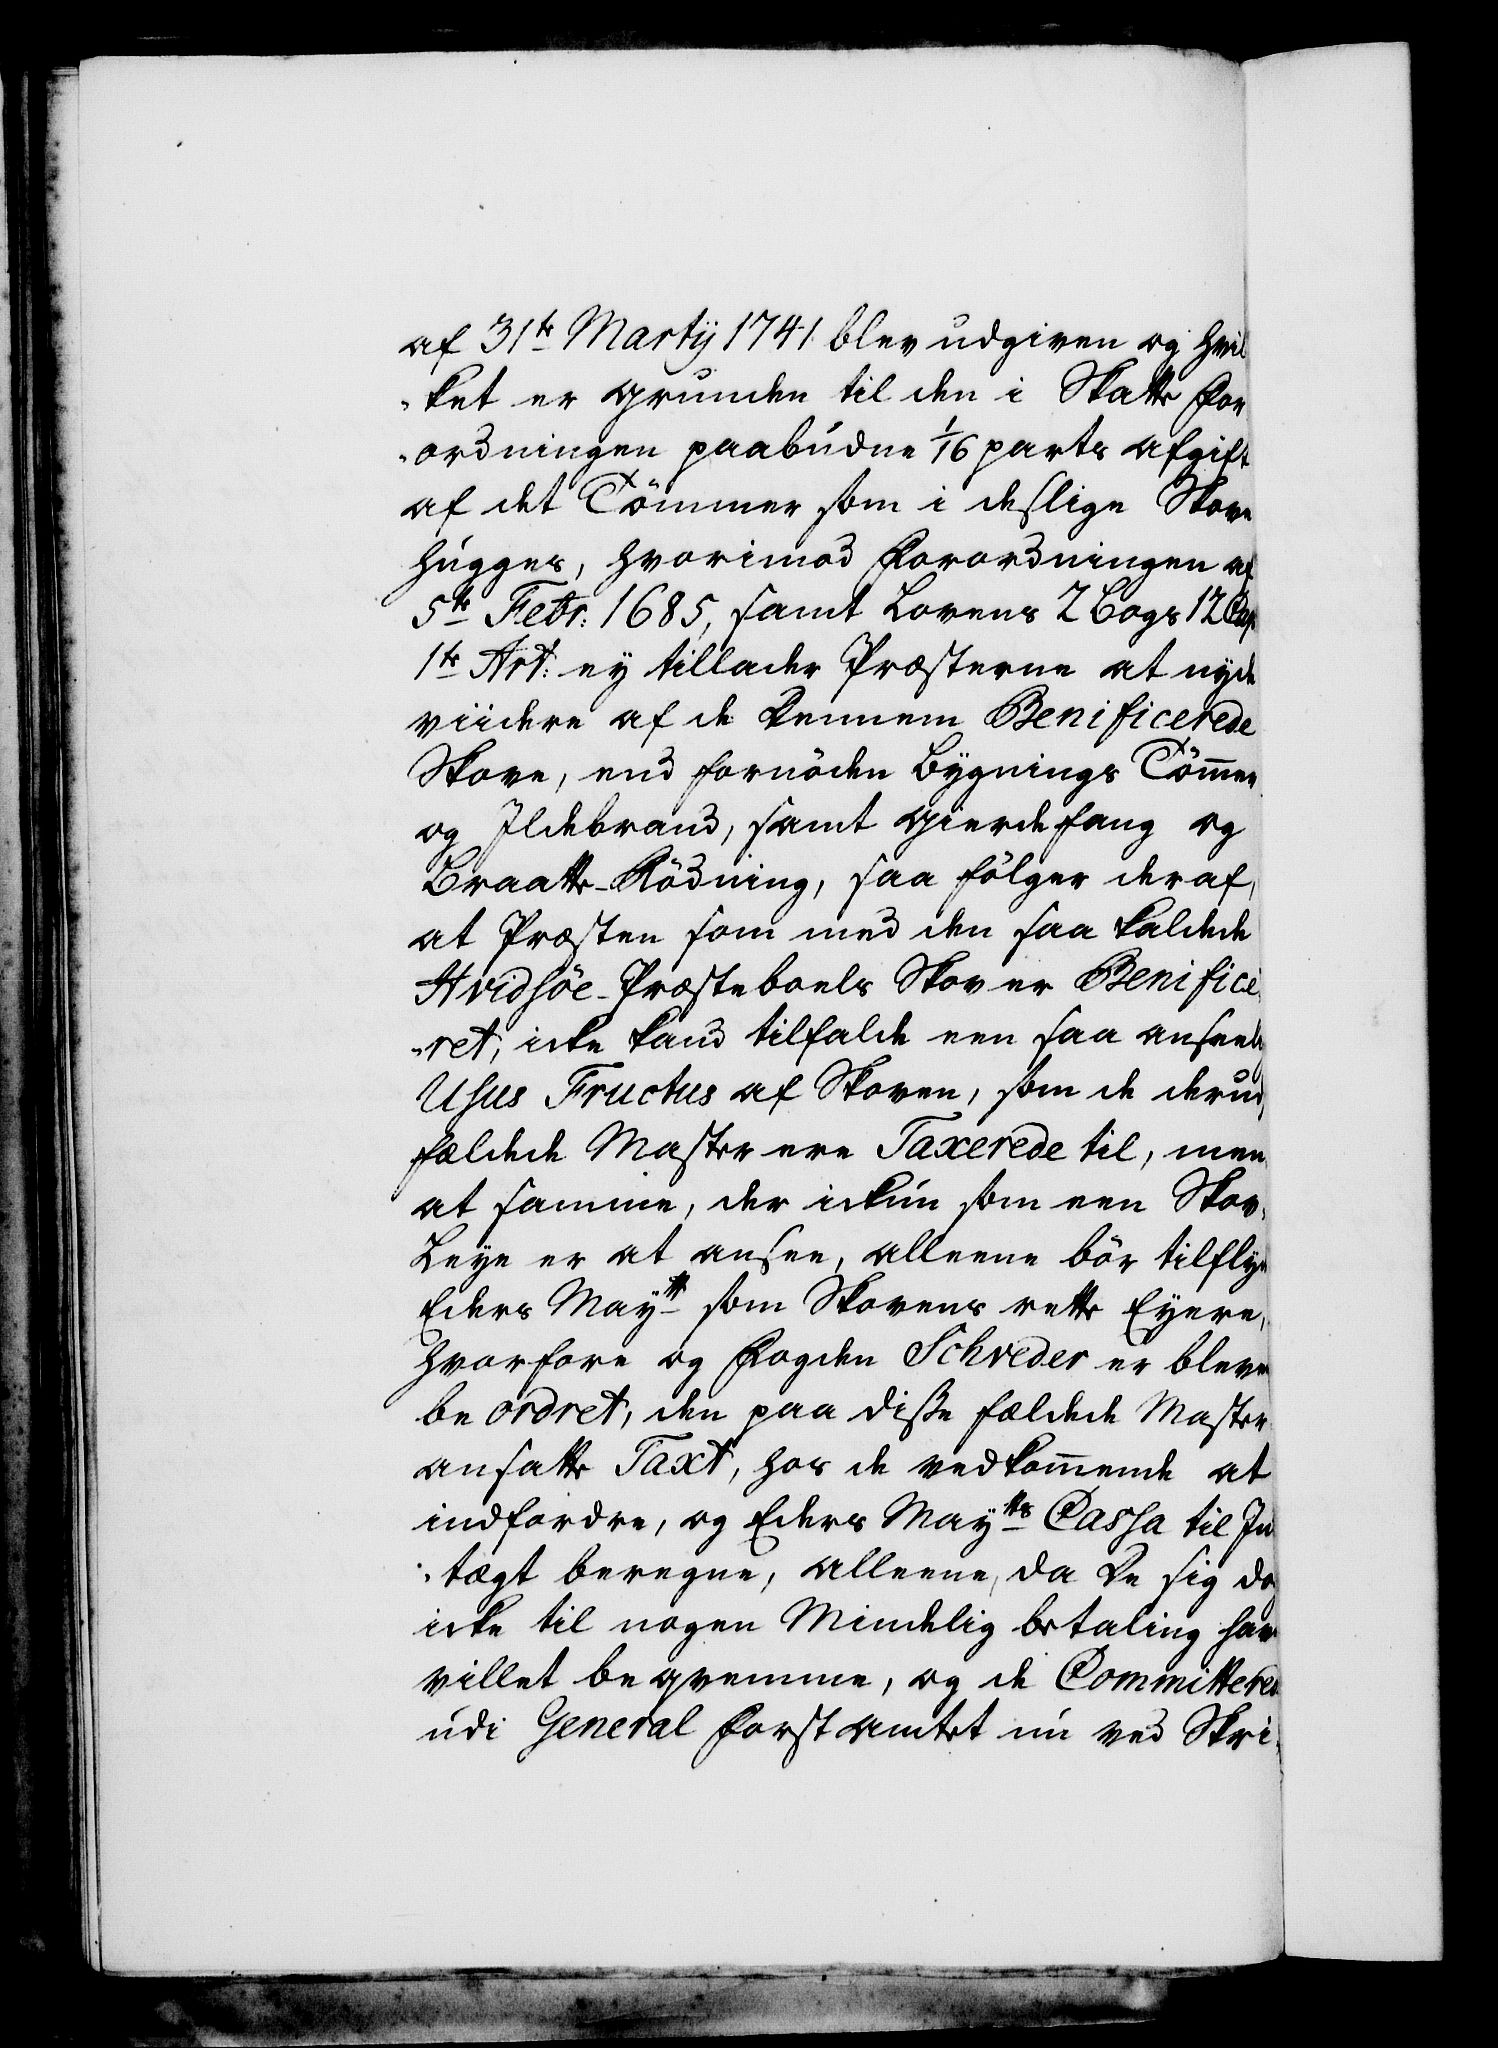 af 31te Martij 1741 blev udgiven og hvil
-ket er grunden til den i Skatte For
-ordningen paabudne 1/16 parts afgift
af det Tömmer som i deslige Skove
hugges, hvorimod Forordningen af
5te Febr: 1685, samt Lovens 2 Bogs 12 Cap
1te Art: ey tillader Præsterne at nyde
viidere af de dennem Benificerede
Skove, end fornöden Bygnings Tömmer
og Ildebrand, samt gierdefang og
Braatte-Rödning, saa fölger deraf,
at Præsten som med den saa kaldede
Hvidsöe-Præsteboels Skov er Benifici
-ret, icke kand tilfalde een saa anseelig
Usus Fructus af Skoven, som de derud
fældede Master ere Taxerede til, men
at samme, der ickun som een Skov-
Leye er at ansee, alleene bör tilflyde
Eders Maytt som Skovens rette Eyere,
hvorfore og Fogden Schreder er bleven
beordret, den paa disse fældede Master
ansatte Taxt, hos de vedkommende at
indfordre, og Eders Maytts Cassa til In
-tægt beregne, alleene, da De sig dog
icke til nogen Mindelig betaling har
villet beqvemme, og de Committerede
udi General Forst amtet nu ved Skri-